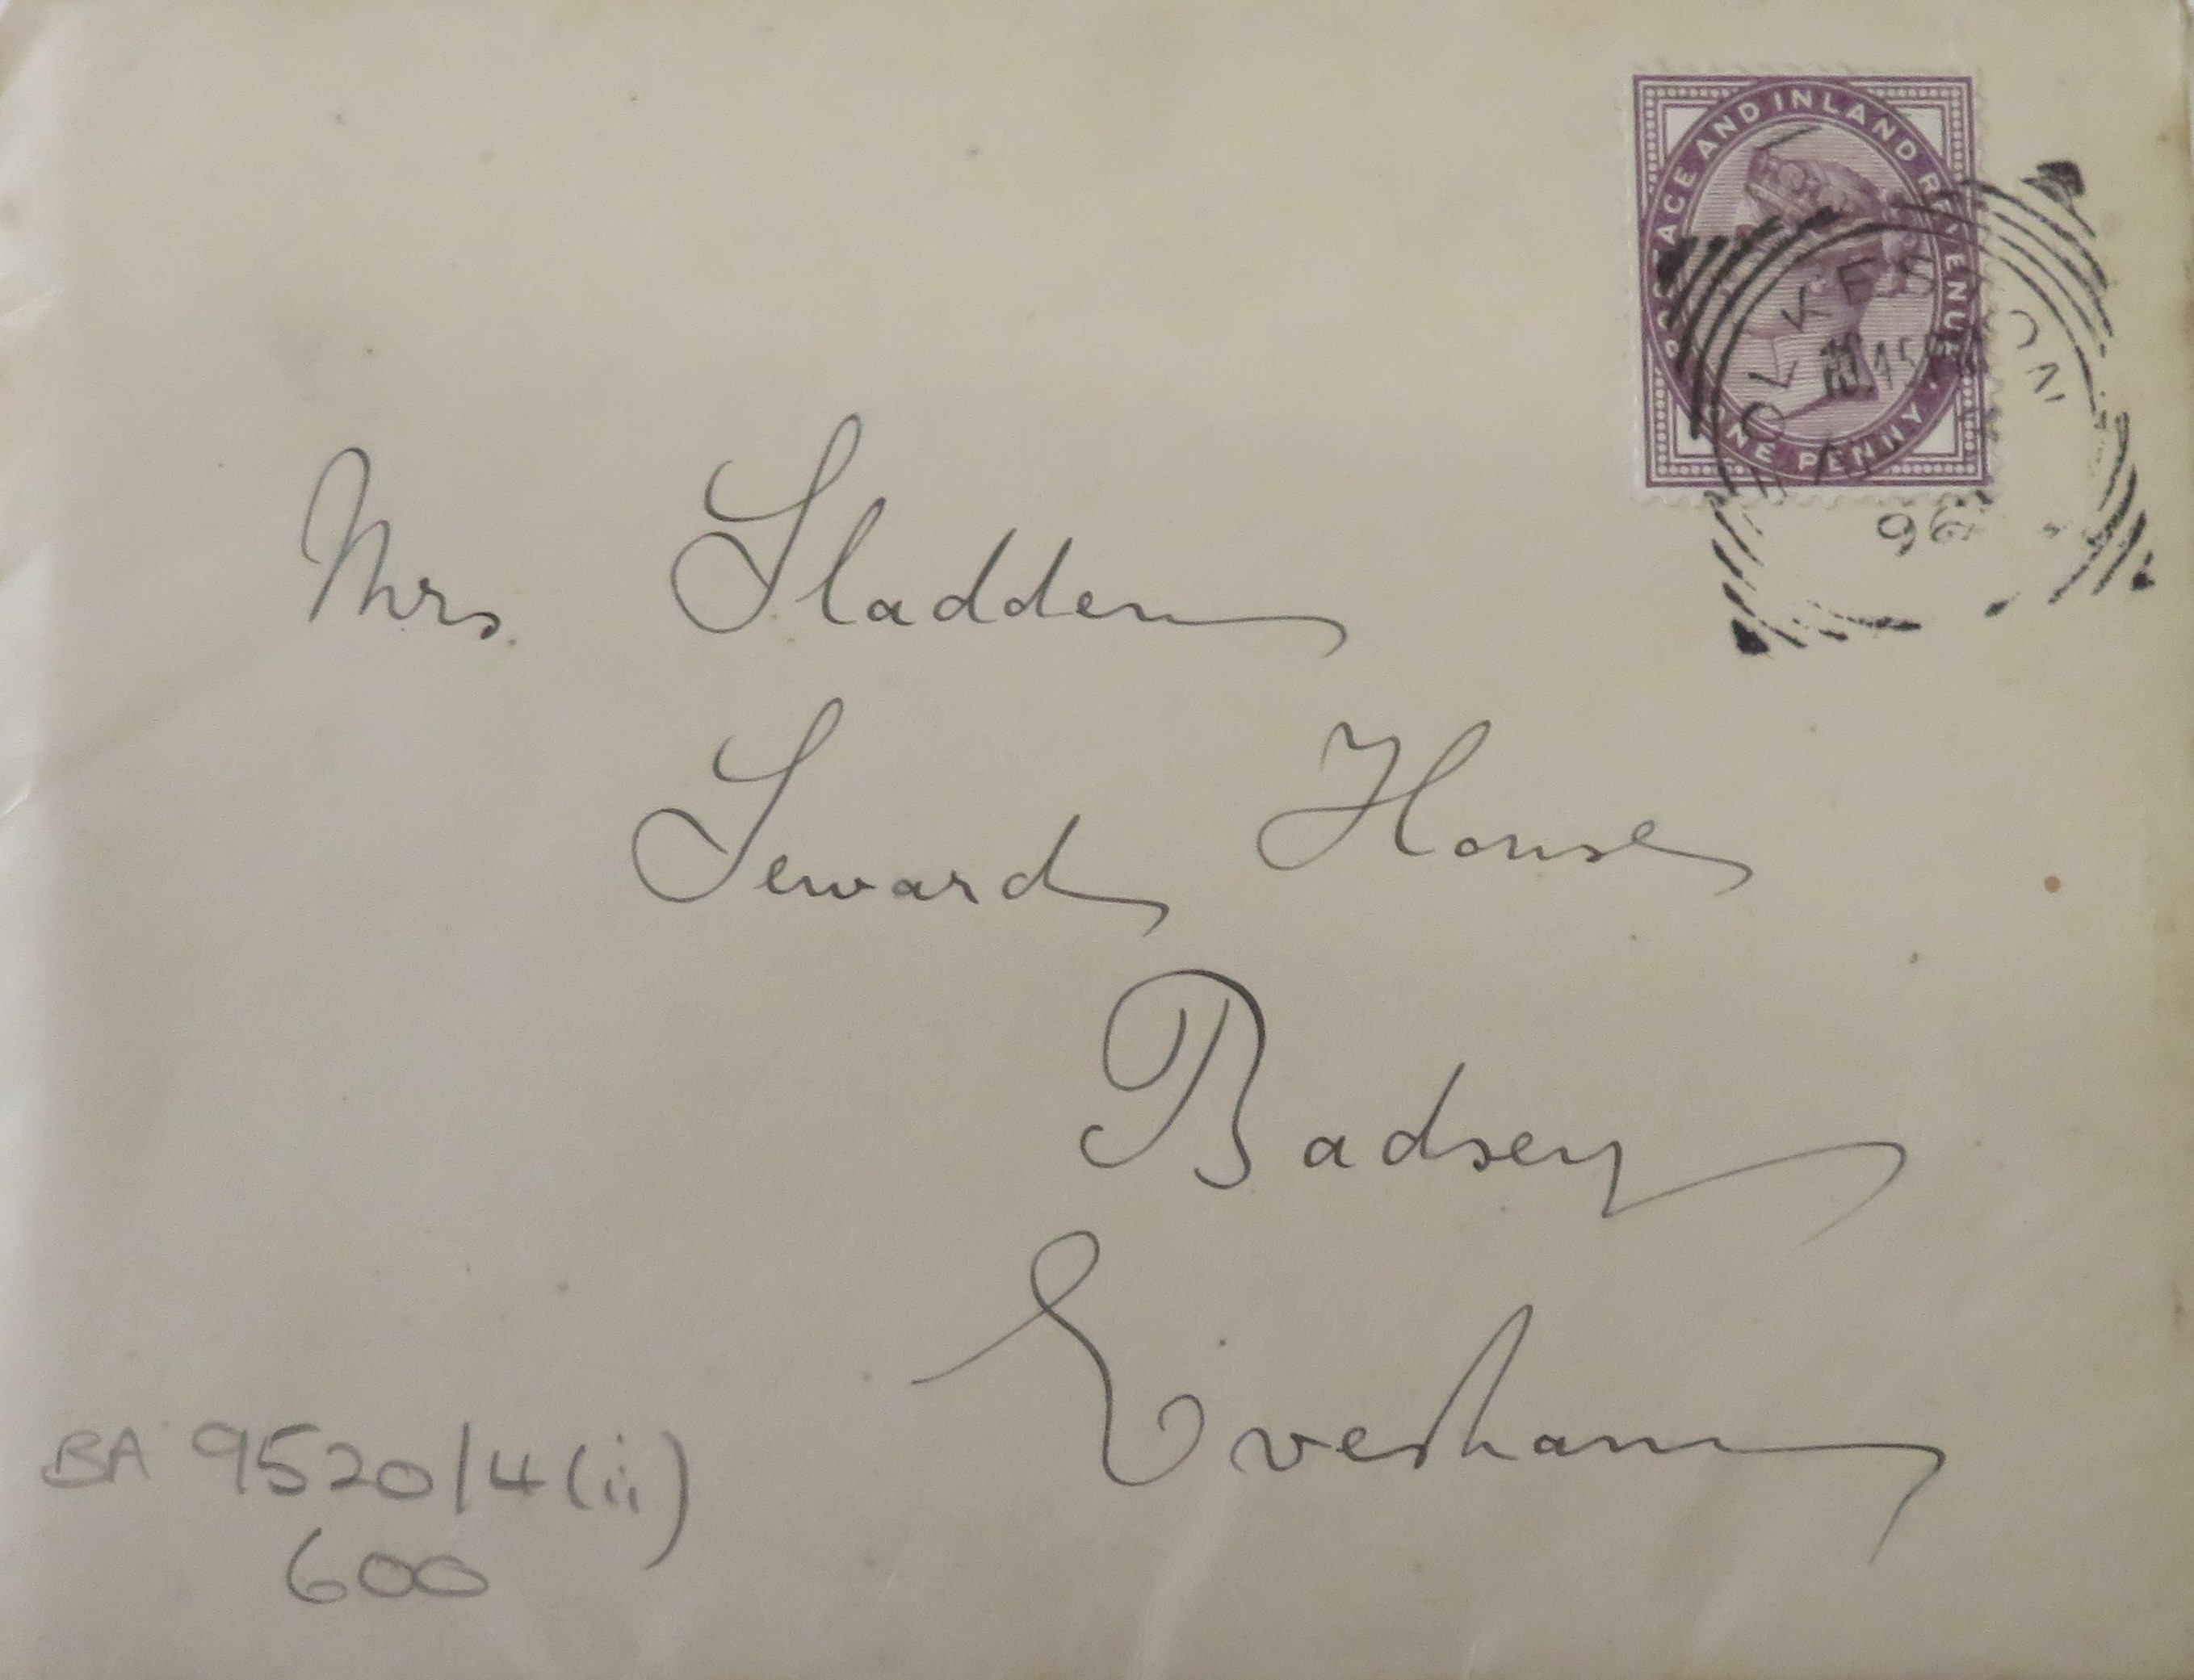 POSTAGE AND INLAND REVENUE.
ONE PENNY.
FOLKESTONE
96
Mrs. Sladden
Seward House
Badsey
Evesham
BA 9520/4(ii)
600